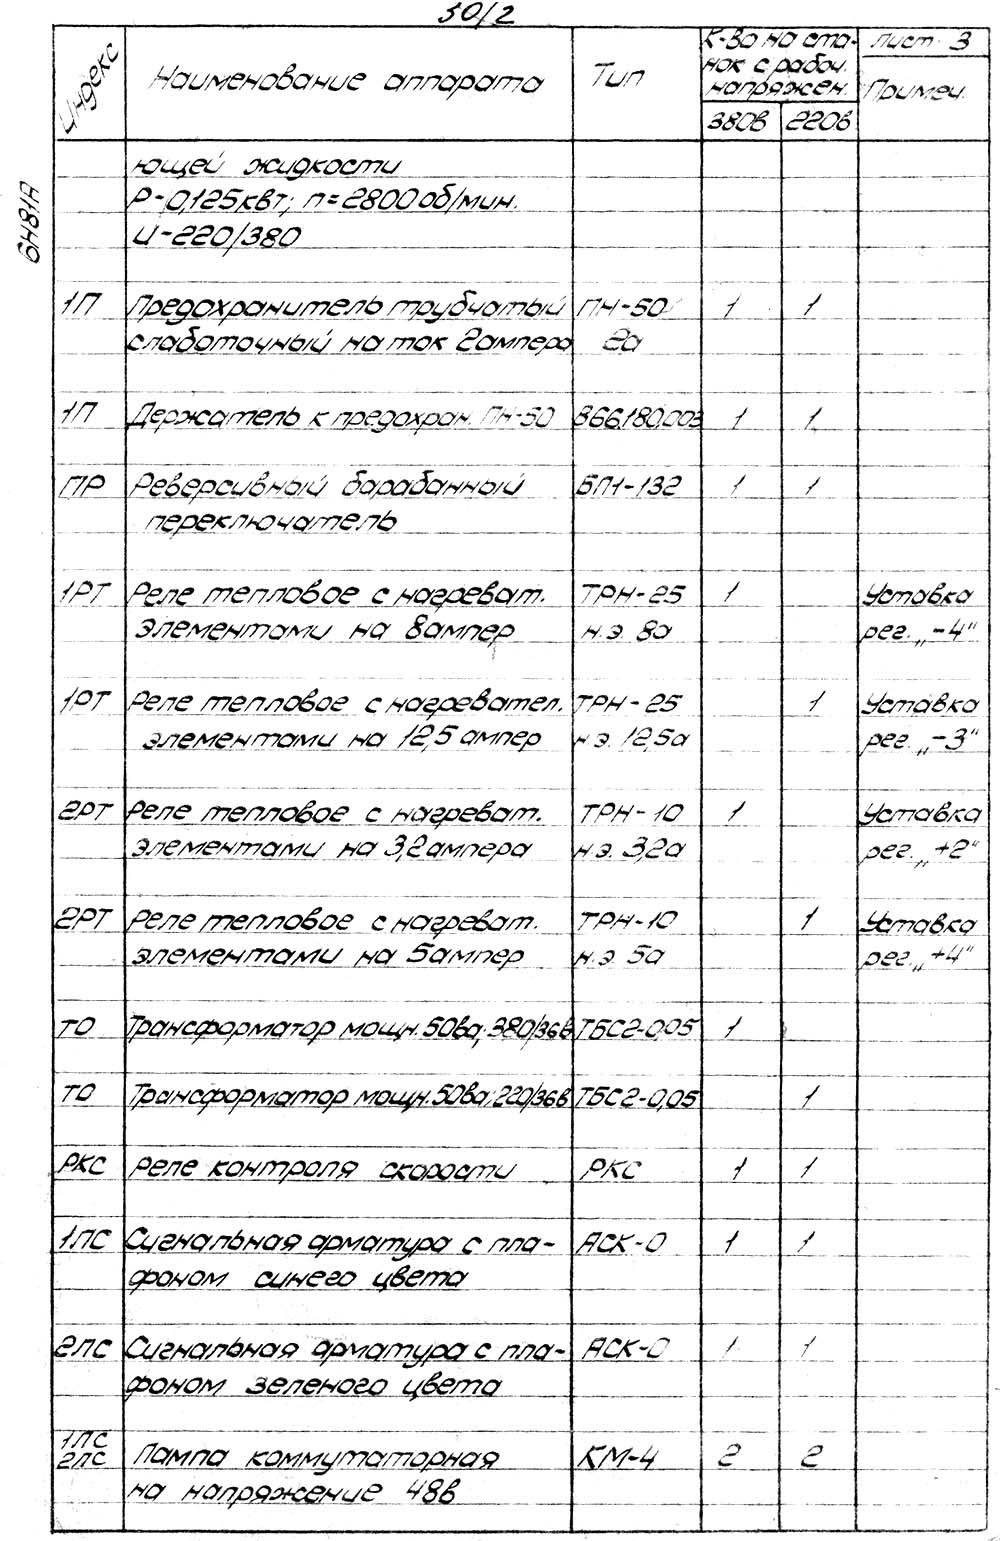 50/2
6Н81А
Индекс Наименование аппарата Тип К-во на ста- Лист 3
нок с рабоч.
напряжен. Примеч.
380в 220в
ющей жидкости
Р-0,125квт; п=2800об/мин.
U-220/380
1П Предохранитель трубчатый ПН-50 1 1
слаботочный на ток 2ампера 2а
1П Держатель к предохран. ПН-50 В66.180.003 1 1
ПР Реверсивный барабанный БП1-132 1 1
переключатель
1РТ Реле тепловое с нагреват. ТРН-25 1 Уставка
элементами на 8ампер н.э. 8а рег. „-4“
1РТ Реле тепловое с нагревател. ТРН-25 1 Уставка
элементами на 12,5 ампер н.э. 12,5а рег. „-3“
2РТ Реле тепловое с нагреват. ТРН-10 1 Уставка
элементами на 3,2ампера н.э. 3,2а рег. „+2“
2РТ Реле тепловое с нагреват. ТРН-10 1 Уставка
элементами на 5ампер н.э. 5а рег. „+4“
ТО Трансформатор мощн. 50ва; 380/36в ТБС2-0,05 1
ТО Трансформатор мощн. 50ва; 220/36в ТБС2-0,05 1
РКС Реле контроля скорости РКС 1 1
1ЛС Сигнальная арматура с пла- АСК-0 1 1
фоном синего цвета
2ЛС Сигнальная арматура с пла- АСК-0 1 1
фоном зеленого цвета
1ЛС
2ЛС Лампа коммутаторная КМ-4 2 2
на напряжение 48в